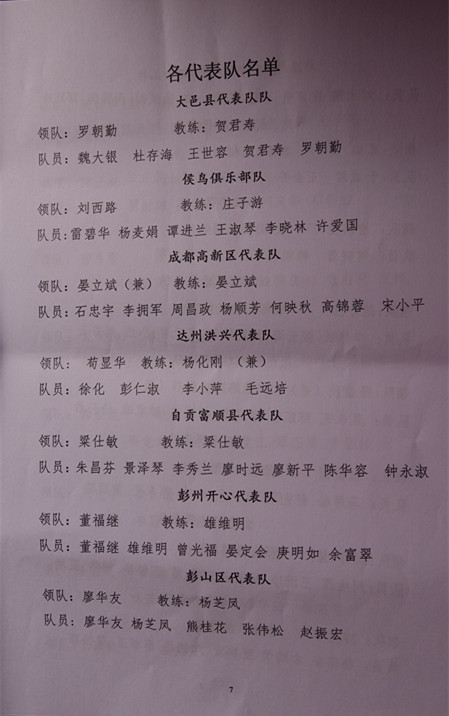 各代表队名单
大邑县代表队队
领队：罗朝勤 教练：贺君寿
队员：魏大银 杜存海 王世容 贺君寿 罗朝勤
侯鸟俱乐部队
领队：刘西路 教练：庄子游
队员:雷碧华 杨麦娟 谭进兰 王淑琴 李晓林 许爱国
成都高新区代表队
领队：晏立斌（兼） 教练：晏立斌
队员:石忠宇 李拥军 周昌政 杨顺芳 何映秋 高锦蓉 宋小平
达州洪兴代表队
领队： 苟显华 教练：杨化刚 （兼）
队员：徐化 彭仁淑 李小萍 毛远培
自贡富顺县代表队
领队：梁仕敏 教练：梁仕敏
队员：朱昌芬 景泽琴 李秀兰 廖时远 廖新平 陈华容 钟永淑
彭州开心代表队
领队：董福继 教练：雄维明
队员：董福继 雄维明 曾光福 晏定会 庚明如 余富翠
彭山区代表队
领队：廖华友 教练：杨芝凤
队员：廖华友 杨芝凤 熊桂花 张伟松 赵振宏
7